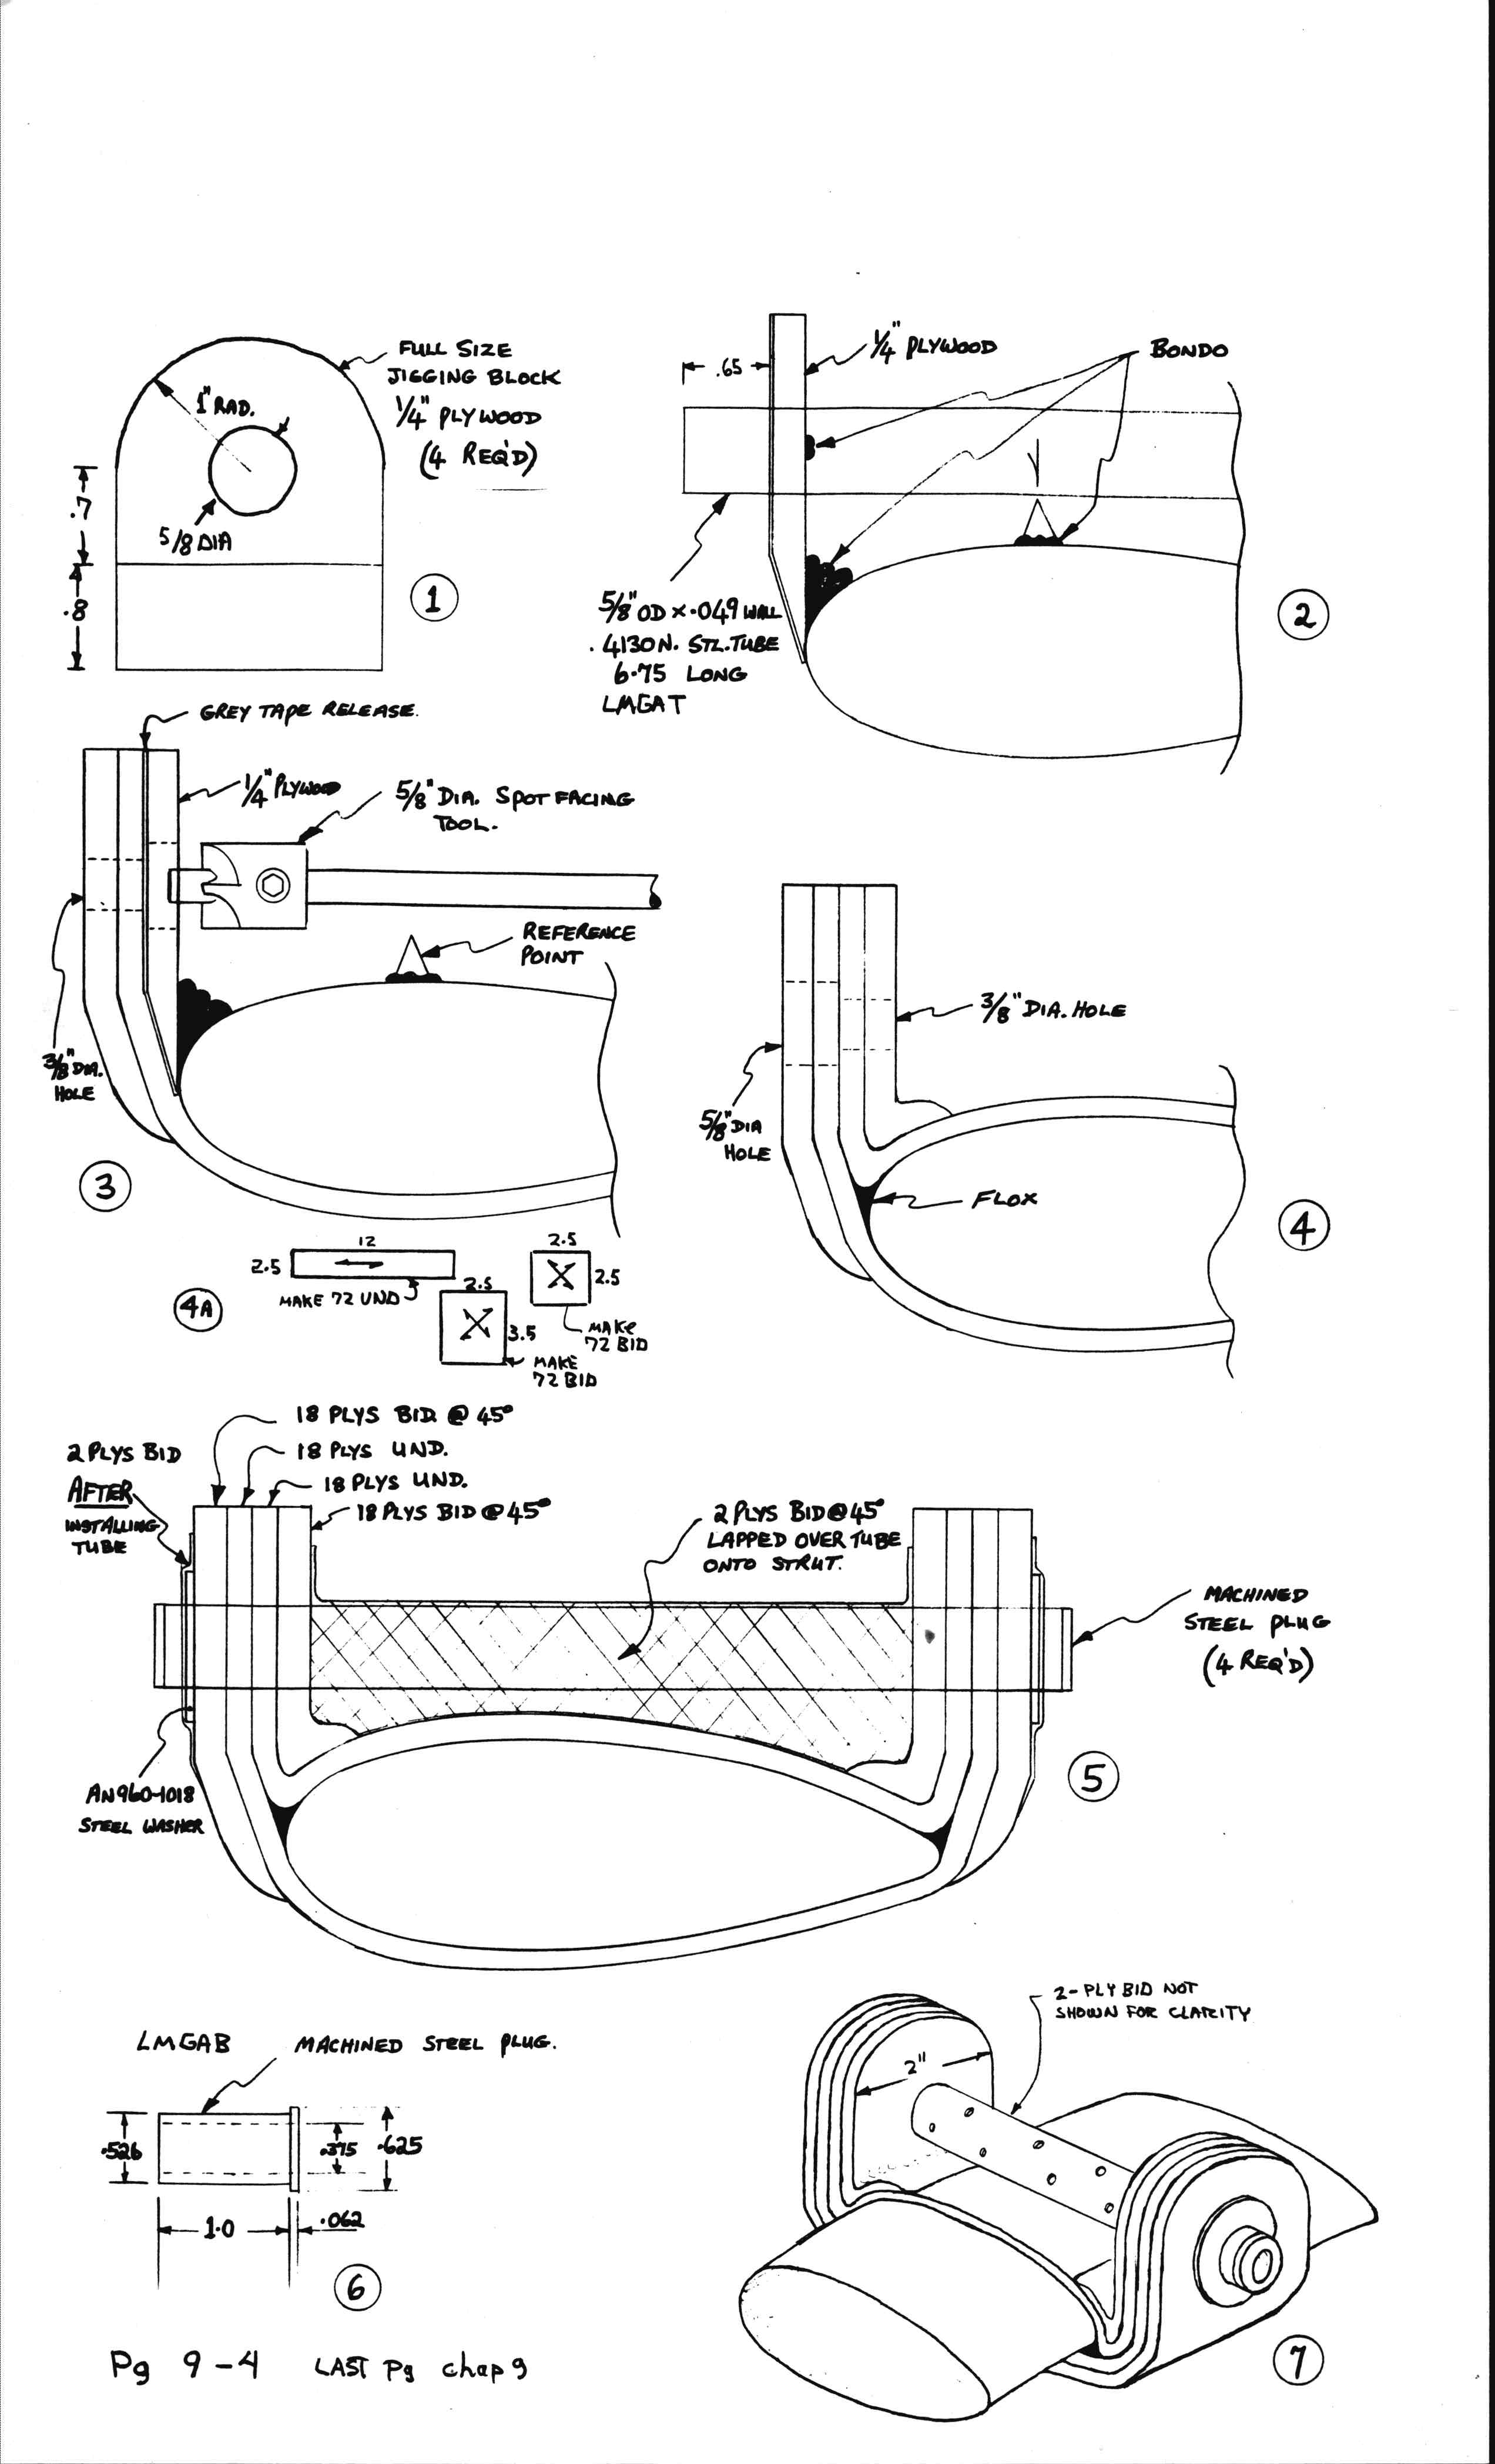 FULL SIZE
JIGGING BLOCK
1/4" PLYWOOD
(4 REQ'D)
1" RAD.
.7
5/8 DIA
.8
1
1/4" PLYWOOD
BONDO
.65
5/8" OD x .049 WALL
.4130N. STL. TUBE
6.75 LONG
LMGAT
2
GREY TAPE RELEASE.
1/4" PLYWOOD
5/8" DIA. SPOT FACING
TOOL.
REFERENCE
POINT
3/8" DIA.
HOLE
3
3/8" DIA. HOLE
5/8" DIA
HOLE
FLOX
4
4A
12
2.5
MAKE 72 UND
2.5
3.5
MAKE
72 BID
2.5
2.5
MAKE
72 BID
18 PLYS BID @ 45°
18 PLYS UND.
18 PLYS UND.
18 PLYS BID @ 45°
2 PLYS BID
AFTER
INSTALLING
TUBE
2 PLYS BID @ 45°
LAPPED OVER TUBE
ONTO STRUT.
MACHINED
STEEL PLUG
(4 REQ'D)
AN960-1018
STEEL WASHER
5
LMGAB
MACHINED STEEL PLUG.
.526
.375
.625
1.0
.062
6
2-PLY BID NOT
SHOWN FOR CLARITY
2"
7
Pg 9-4 LAST Pg chap 9